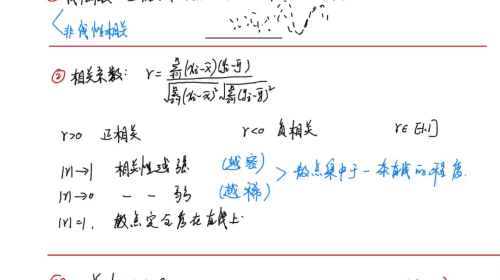 非线性相关
② 相关系数: r = \frac{\sum_{i=1}^{n}(x_i-\bar{x})(y_i-\bar{y})}{\sqrt{\sum_{i=1}^{n}(x_i-\bar{x})^2}\sqrt{\sum_{i=1}^{n}(y_i-\bar{y})^2}}
r>0 正相关 r<0 负相关 r∈[-1,1]
|r|→1 相关性越强 (越密) > 散点集中于一条直线的程度.
|r|→0 — — 弱 (越稀)
|r|=1, 散点定全落在直线上.